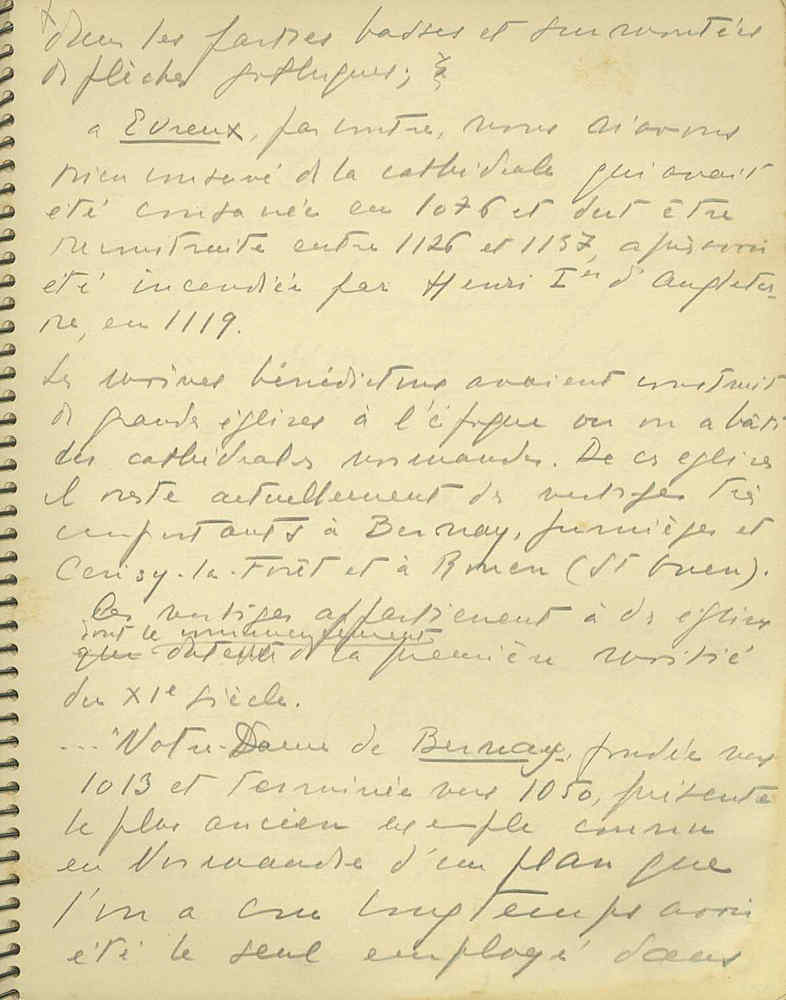 dans les parties basses et surmontées
de flèches gothiques;
a Evreux, par contre, nous n'avons
rien conservé de la cathédrale qui avait
été consacrée en 1076 et dut être
reconstruite entre 1126 et 1157, après avoir
été incendiée par Henri Ier d'Angleter-
re, en 1119.
Les moines bénédictins avaient construit
de grandes églises à l'époque où on a bâti
des cathédrales normandes. De ces eglises
il reste actuellement des vestiges très
importants à Bernay, Jumièges et
Cerisy-la-Forêt et à Rouen (St Ouen).
Ces vestiges appartienent à des eglises
dont le commencement
que datent de la première moitié
du XIe siècle.
... "Notre-Dame de Bernay, fondée vers
1013 et terminée vers 1050, présente
le plus ancien exemple connu
en Normandie d'un plan que
l'on a cru longtemps avoir
été le seul employé dans